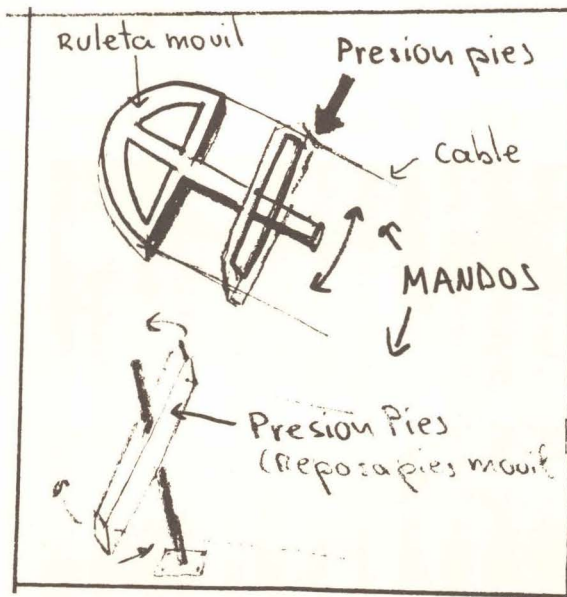 Ruleta movil
Presion pies
Cable
MANDOS
Presion Pies
(Reposapies movil